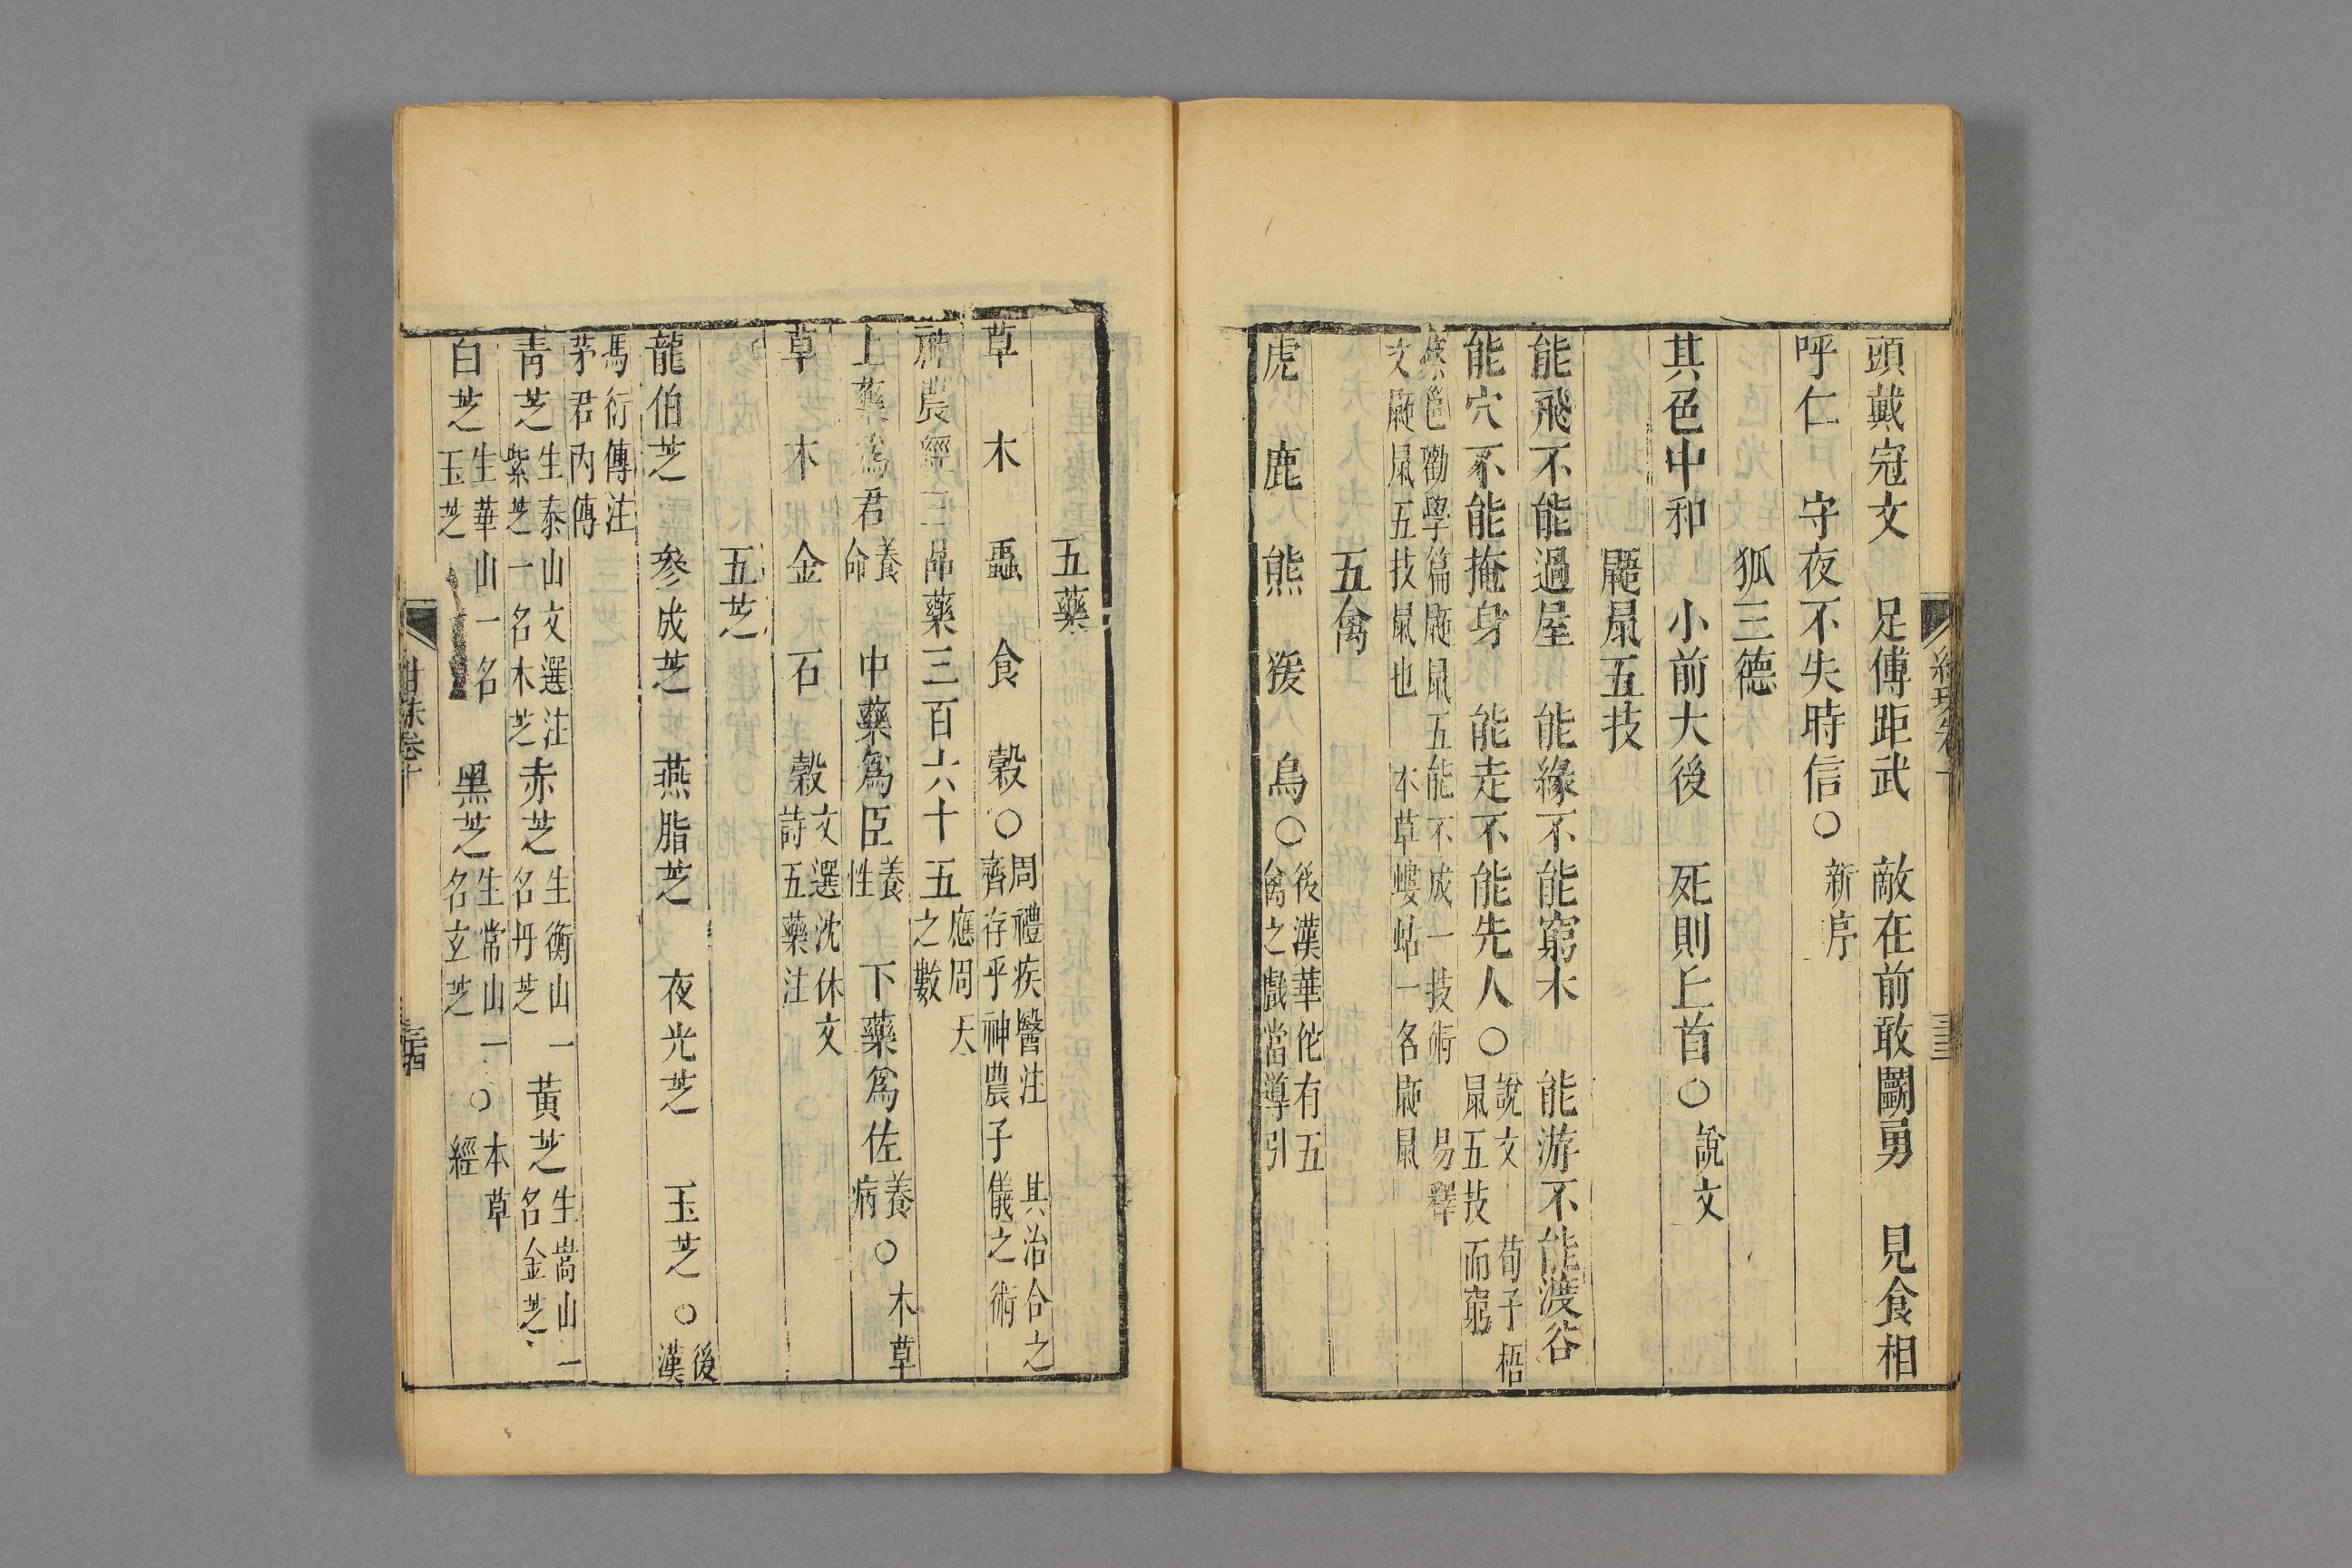 頭戴冠文　足傅距武　敵在前敢鬭勇　見食相
呼仁　守夜不失時信〇新序
狐三德
其色中和　小前大後　死則丘首〇說文
鼫鼠五技
能飛不能過屋　能緣不能窮木　能游不能渡谷
能穴不能掩身　能走不能先人〇說文　荀子梧
鼠五技而窮
蔡邕勸學篇鼫鼠五能不成一技術　易釋
文鼫鼠五技鼠也　本草螻蛄一名鼫鼠
五禽
虎　鹿　熊　猨　鳥〇後漢華佗有五
禽之戲當導引
五藥
草　木　蟲　食　榖〇周禮疾醫注　其治合之
齊存乎神農子儀之術
神農經三品藥三百六十五應周天
之數
上藥爲君養
命　中藥爲臣養
性　下藥爲佐養
病〇木草
草　木　金　石　榖文選沈休文
詩五藥注
五芝
龍伯芝　參成芝　燕脂芝　夜光芝　玉芝〇後
漢
馮衍傳注
茅君內傳
靑芝生泰山文選注
紫芝一名木芝赤芝生衡山一
名丹芝　黃芝生嵩山一
名金芝
白芝生華山一名
玉芝　黑芝生常山一
名玄芝〇本草
經
三四